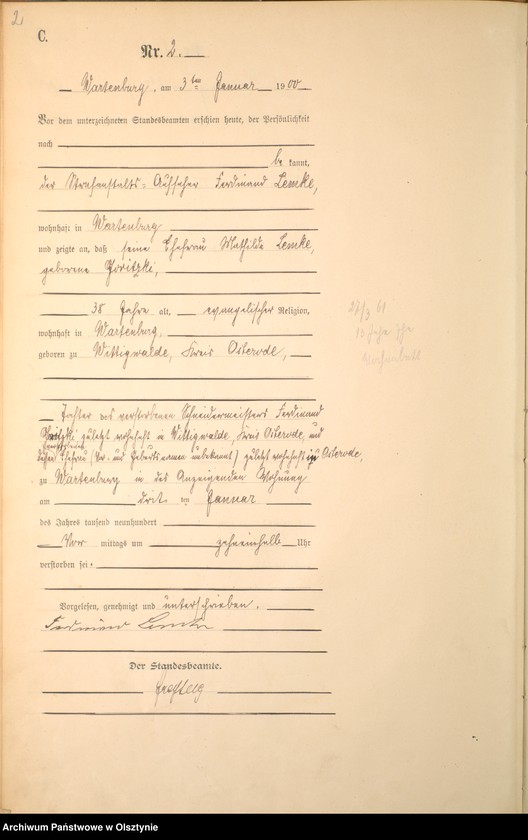 2
C.
Nr. 2.
Wartenburg, am 3ten Januar 1900
Vor dem unterzeichneten Standesbeamten erschien heute, der Persönlichkeit
nach
be kannt,
der Strafanstalts-Aufseher Ferdinand Lemke,
wohnhaft in Wartenburg
und zeigte an, daß seine Ehefrau Mathilde Lemke,
geborene
38 Jahre alt, evangelischer Religion,
wohnhaft in Wartenburg,
geboren zu Wittigwalde, Kreis Osterode,
27/3 61
Tochter des verstorbenen Schneidermeisters Ferdinand
zuletzt wohnhaft in Wittigwalde, Kreis Osterode, und
dessen Ehefrau (Vor- und Geburtsnamen unbekannt) zuletzt wohnhaft in Osterode,
zu Wartenburg in des Anzeigenden Wohnung
am drit ten Januar
des Jahres tausend neunhundert
Vor mittags um zehneinhalb Uhr
verstorben sei.
Vorgelesen, genehmigt und unterschrieben.
Ferdinand Lemke
Der Standesbeamte.
Archiwum Państwowe w Olsztynie